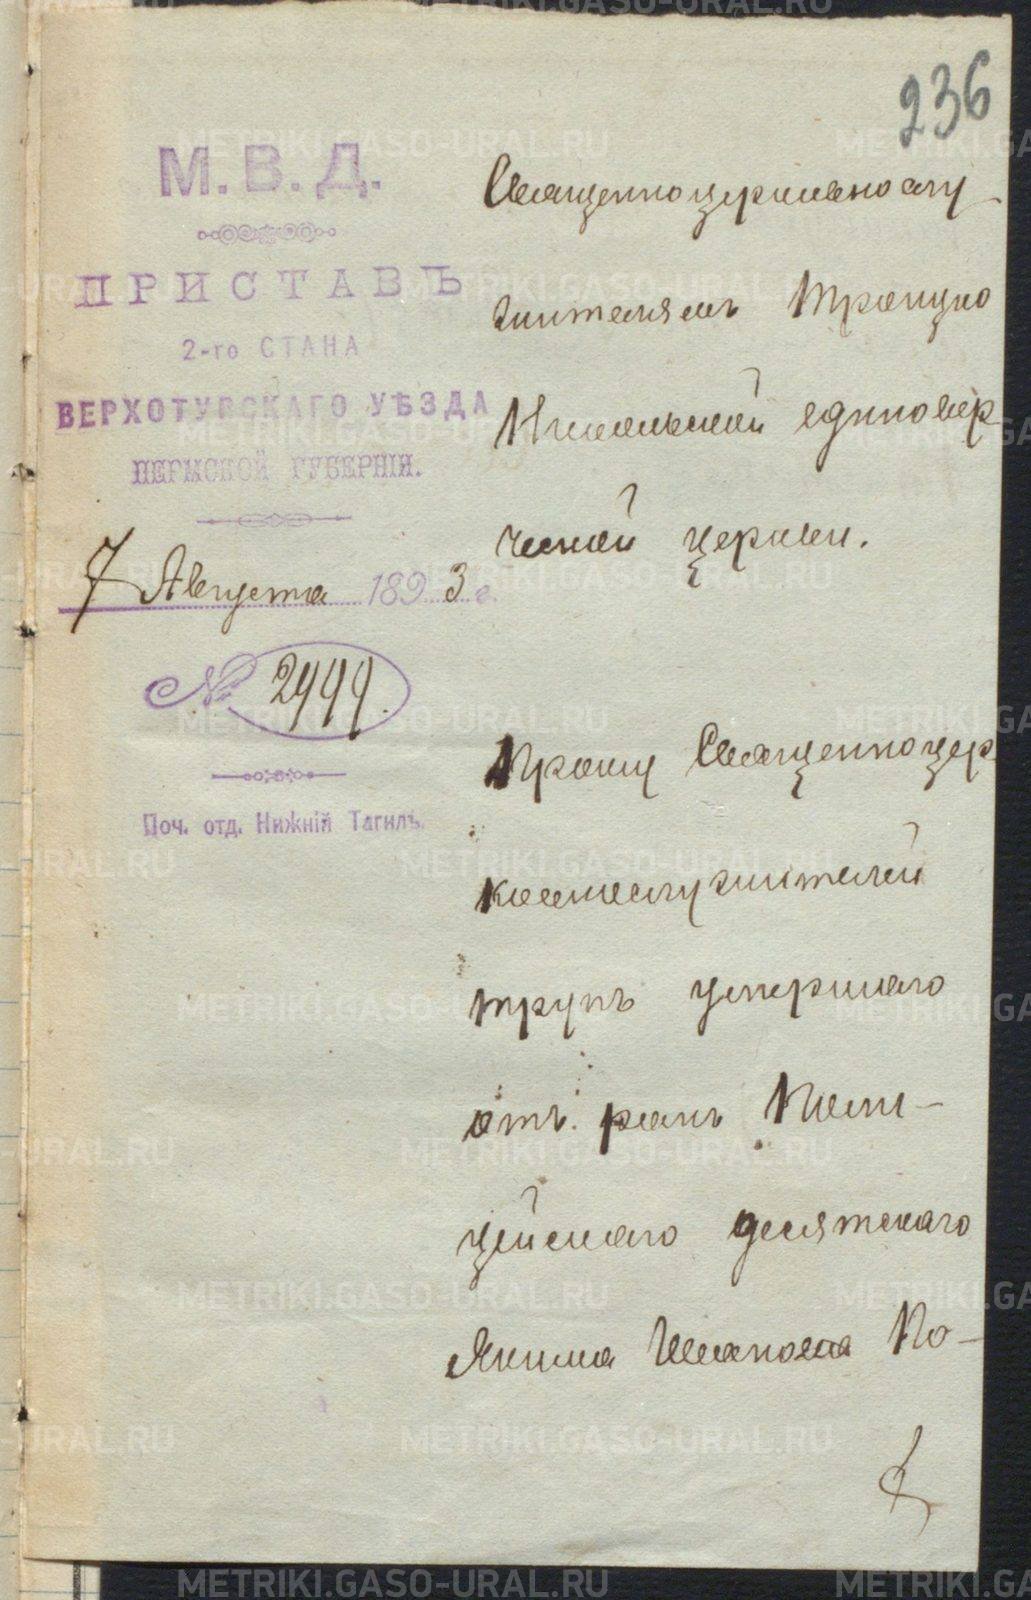 236
М.В.Д.
ПРИСТАВЪ
2-го СТАНА
ВЕРХОТУРСКАГО УѢЗДА
ПЕРМСКОЙ ГУБЕРНІИ.
7 Августа 1893 г.
№ 2999.
Поч. отд. Нижній Тагилъ.
Священноцерковнослу
жителямъ Троицко
Никольской единовер
ческой церкви.
Прошу Священноцер
ковнослужителей
трупъ умершаго
отъ ранъ Поли-
цейскаго десятскаго
Якима По-
METRIKI.GASO-URAL.RU